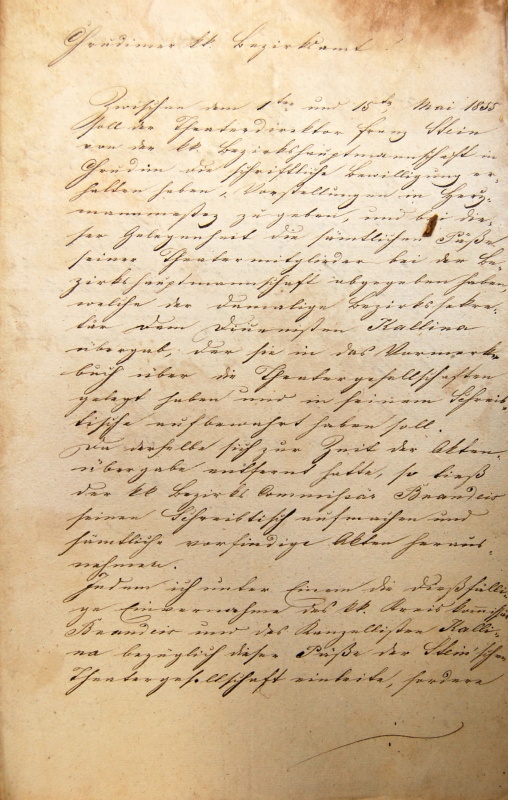 Chrudimer kk. Bezirksamt
Zwischen dem 1ten und 15ten Mai 1855
soll der Theaterdirektor Franz Stein
von der kk. Bezirkshauptmannschaft in
Chrudim die schriftliche Bewilligung er-
halten haben, Vorstellungen in Herz-
mannmestez zu geben, und bei die-
ser Gelegenheit die sämtlichen Päße
seiner Theatermitglieder bei der Be-
zirkshauptmannschaft abgegeben haben,
welche der damalige Bezirkssekre-
tär dem Diurnisten Kallina
übergab, der sie in das Vormerk-
buch über die Theatergesellschaften
gelegt haben und in seinem Schreib-
tische aufbewahrt haben soll.
Da derselbe sich zur Zeit der Akten-
übergabe entfernt hatte, so ließ
der kk Bezirks Commissär
seinen Schreibtisch aufmachen und
sämtliche vorfindige Akten heraus-
nehmen.
Indem ich unter Einem die dießfälli-
ge Einvernahme des kk. Kreis
und des Kanzellisten Kalli-
na bezüglich dieser Päße der Stein'schen
Theatergesellschaft einleite, fordere